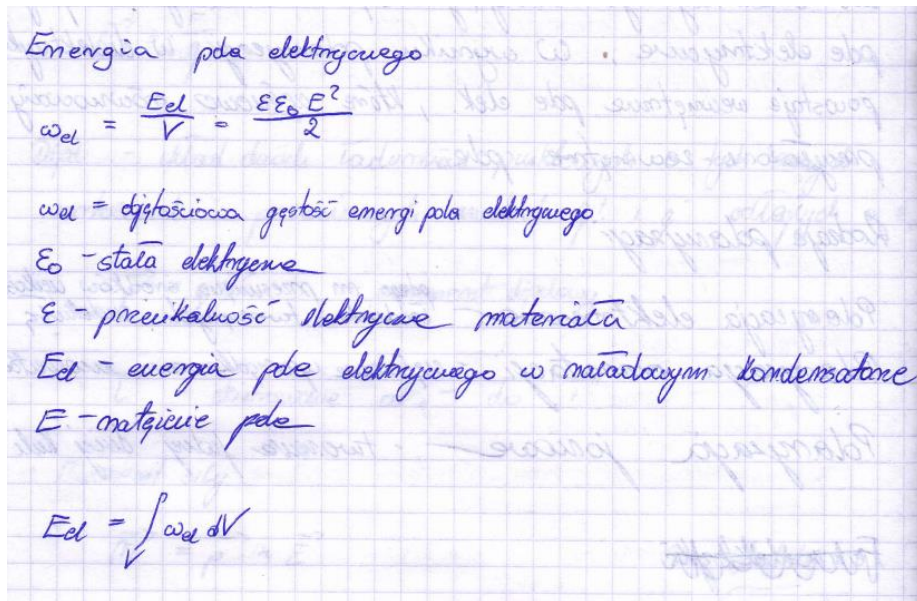 Energia pola elektrycznego
ω_el = E_el / V = εε₀E² / 2
ω_el = objętościowa gęstość energi pola elektrycznego
ε₀ - stała elektryczna
ε - przenikalność elektryczna materiału
E_el - energia pola elektrycznego w naładowanym kondensatorze
E - natężenie pola
E_el = ∫_V ω_el dV